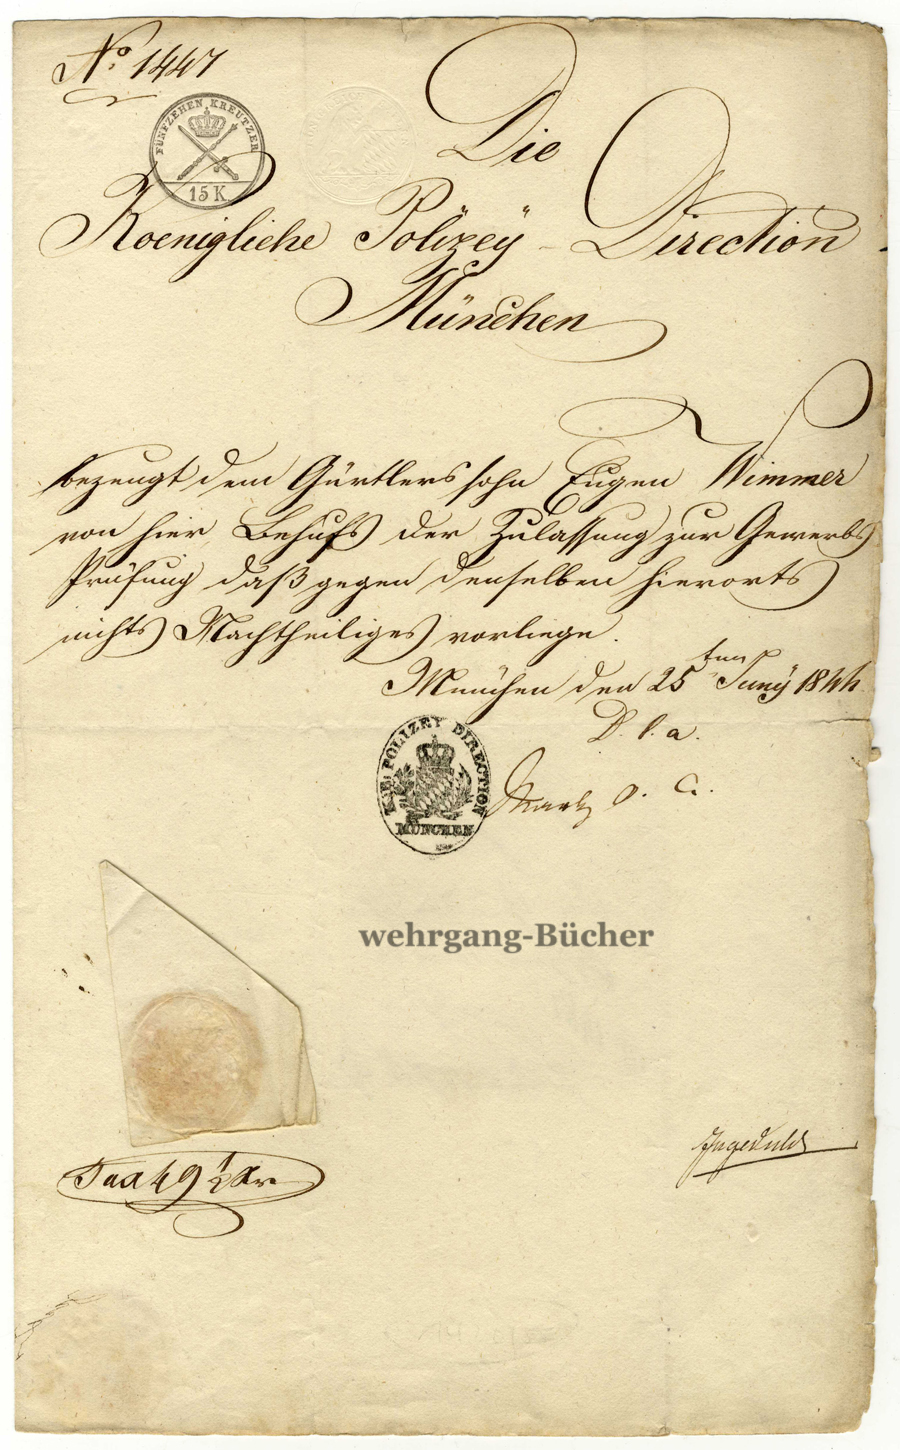 No. 1447
FÜNFZEHEN KREUTZER
15 K
Die
Koenigliche Polizey-Direction
München
bezeugt dem Gürtlerssohn Eugen Wimmer
von hier Behufs der Zulassung zur Gewerbs
Prüfung daß gegen denselben hierorts
nichts Nachtheiliges vorliege.
München den 25ten Juny 1844
D. l. a.
POLIZEY DIRECTION
MÜNCHEN
wehrgang-Bücher
Tax 49 1/2 Kr